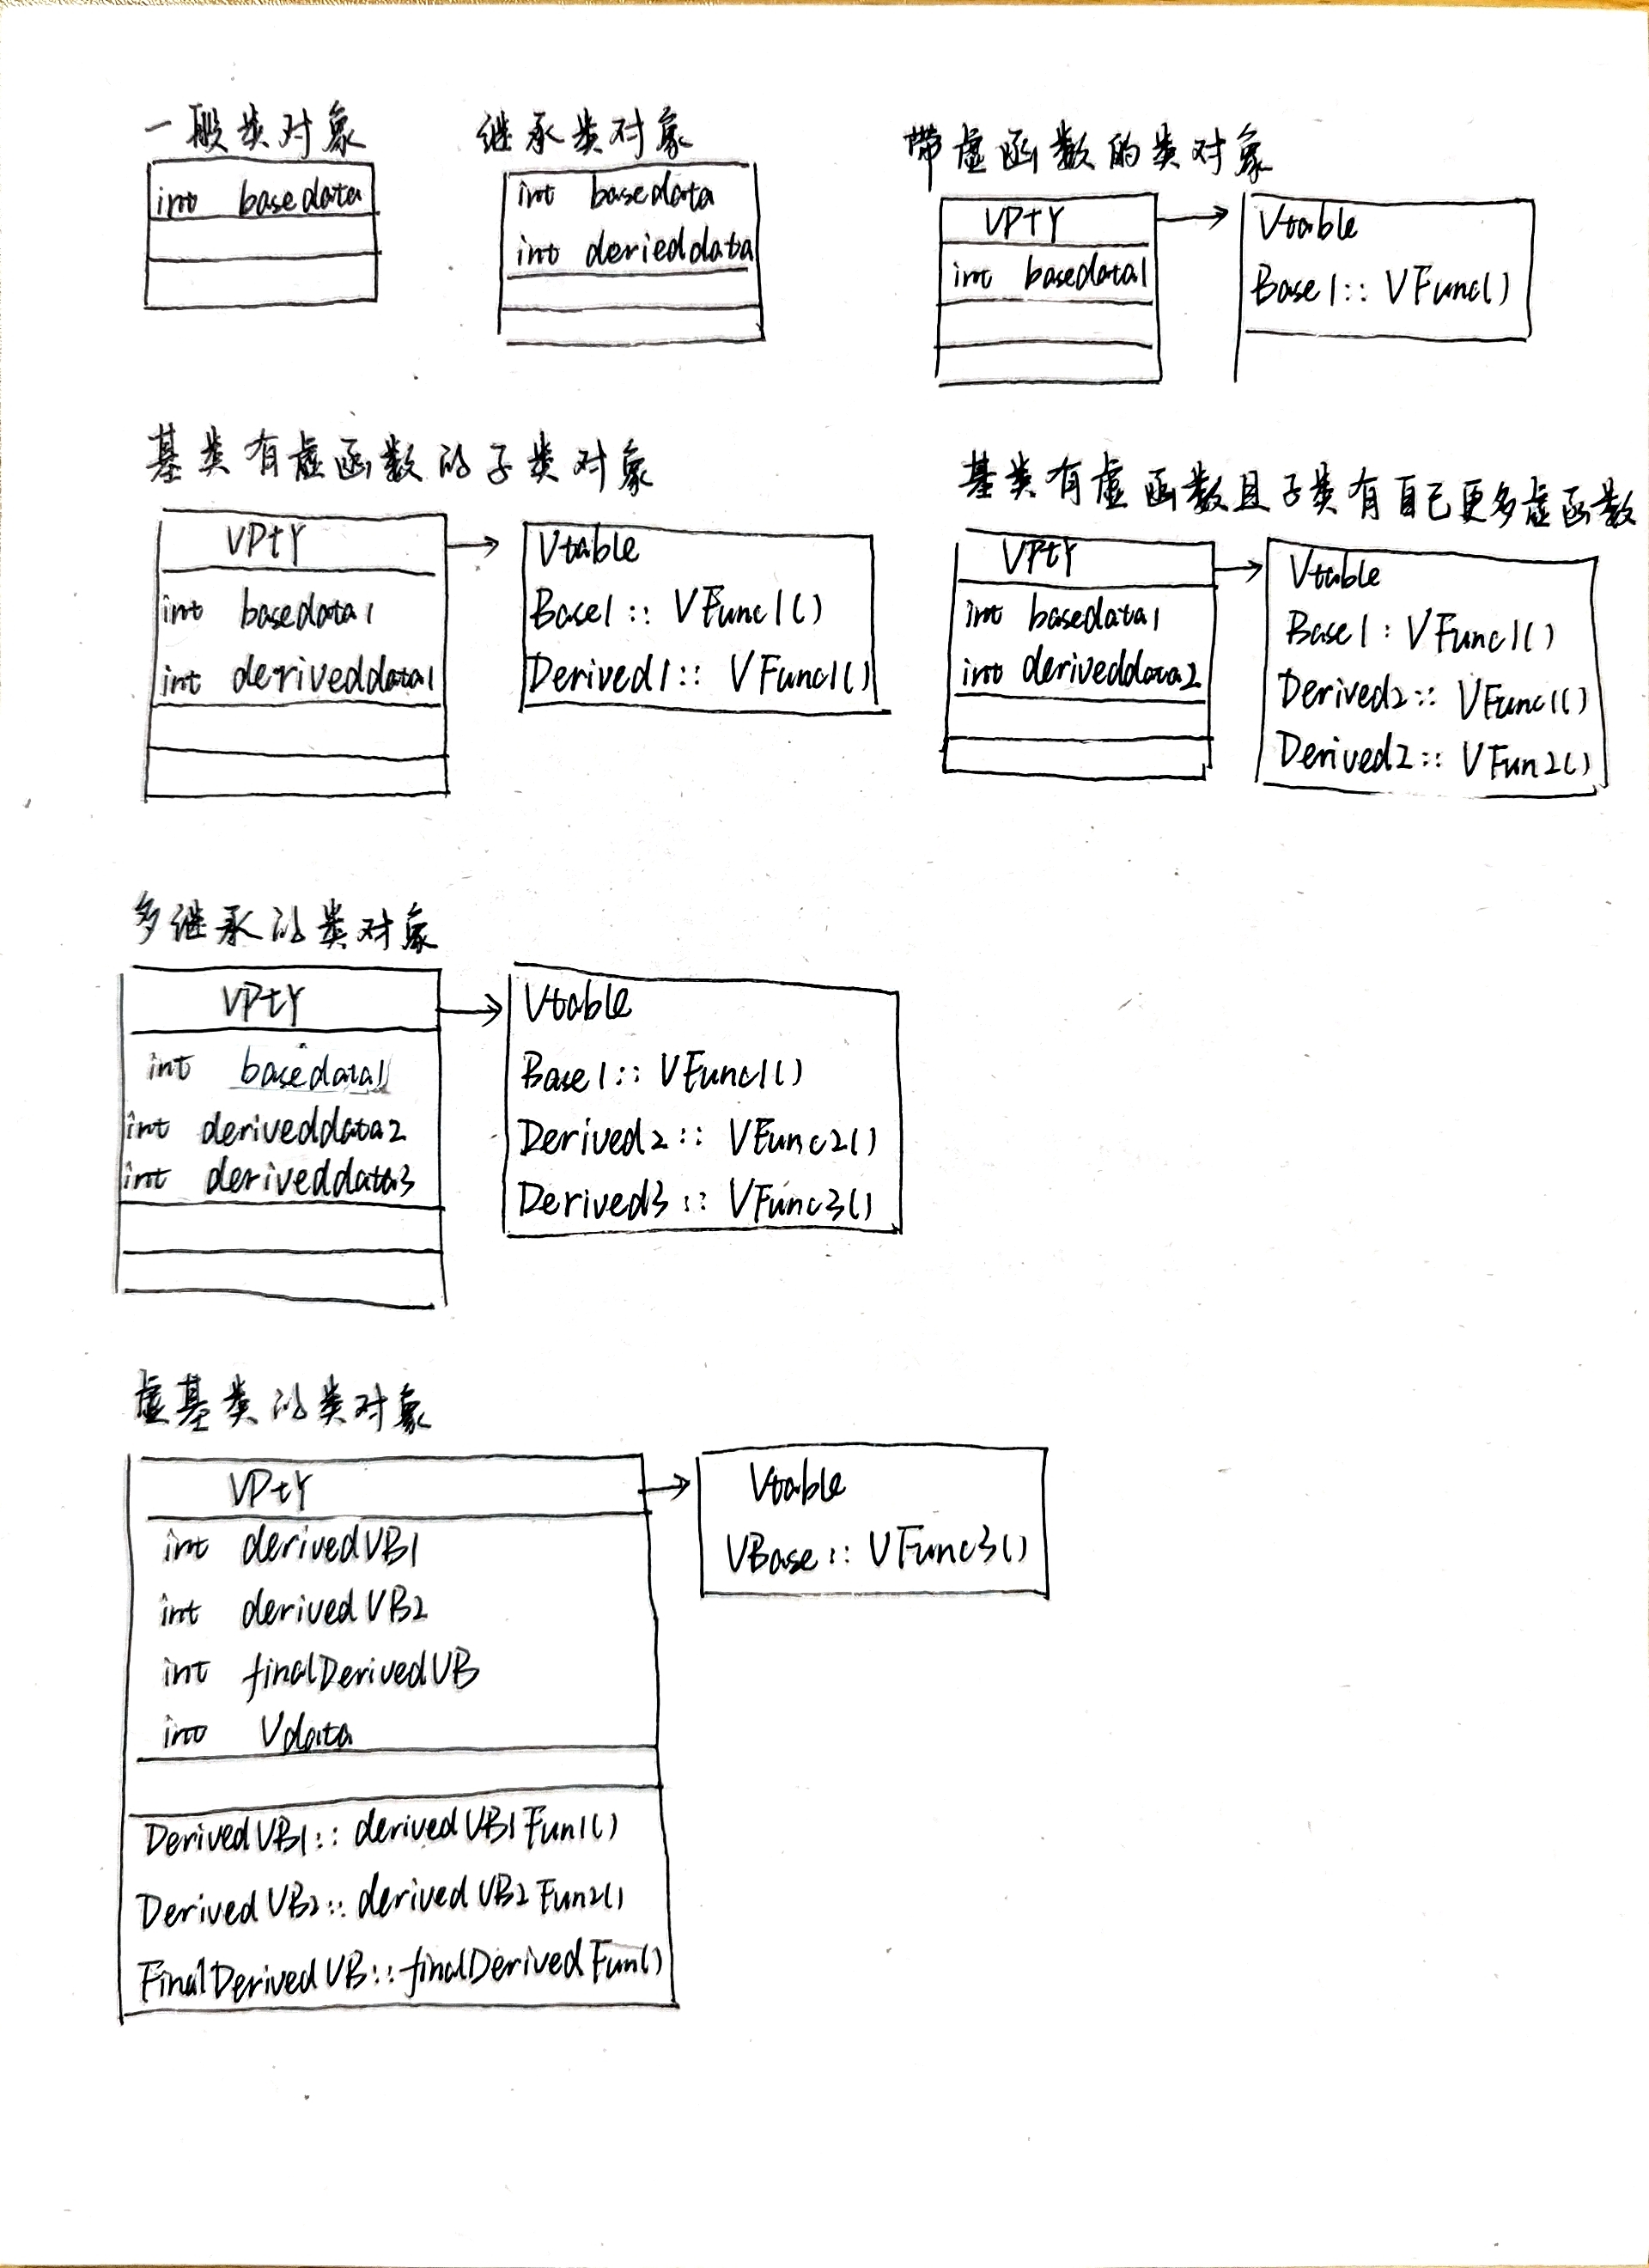 一般类对象
int basedata
继承类对象
int basedata
int derieddata
带虚函数的类对象
VPtr
int basedata1
Vtable
Base1::VFunc()
基类有虚函数的子类对象
VPtr
int basedata1
int deriveddata1
Vtable
Base1::VFunc1()
Derived1::VFunc1()
基类有虚函数且子类有自己更多虚函数
VPtr
int basedata1
int deriveddata2
Vtable
Base1:VFunc1()
Derived2::VFunc1()
Derived2::VFun2()
多继承的类对象
VPtr
int basedata1
int deriveddata2
int deriveddata3
Vtable
Base1::VFunc1()
Derived2::VFunc2()
Derived3::VFunc3()
虚基类的类对象
VPtr
int derivedVB1
int derivedVB2
int finalDerivedVB
int Vdata
DerivedVB1::derivedVB1Fun1()
DerivedVB2::derivedVB2Fun2()
FinalDerivedVB::finalDerivedFun()
Vtable
VBase::VFunc3()